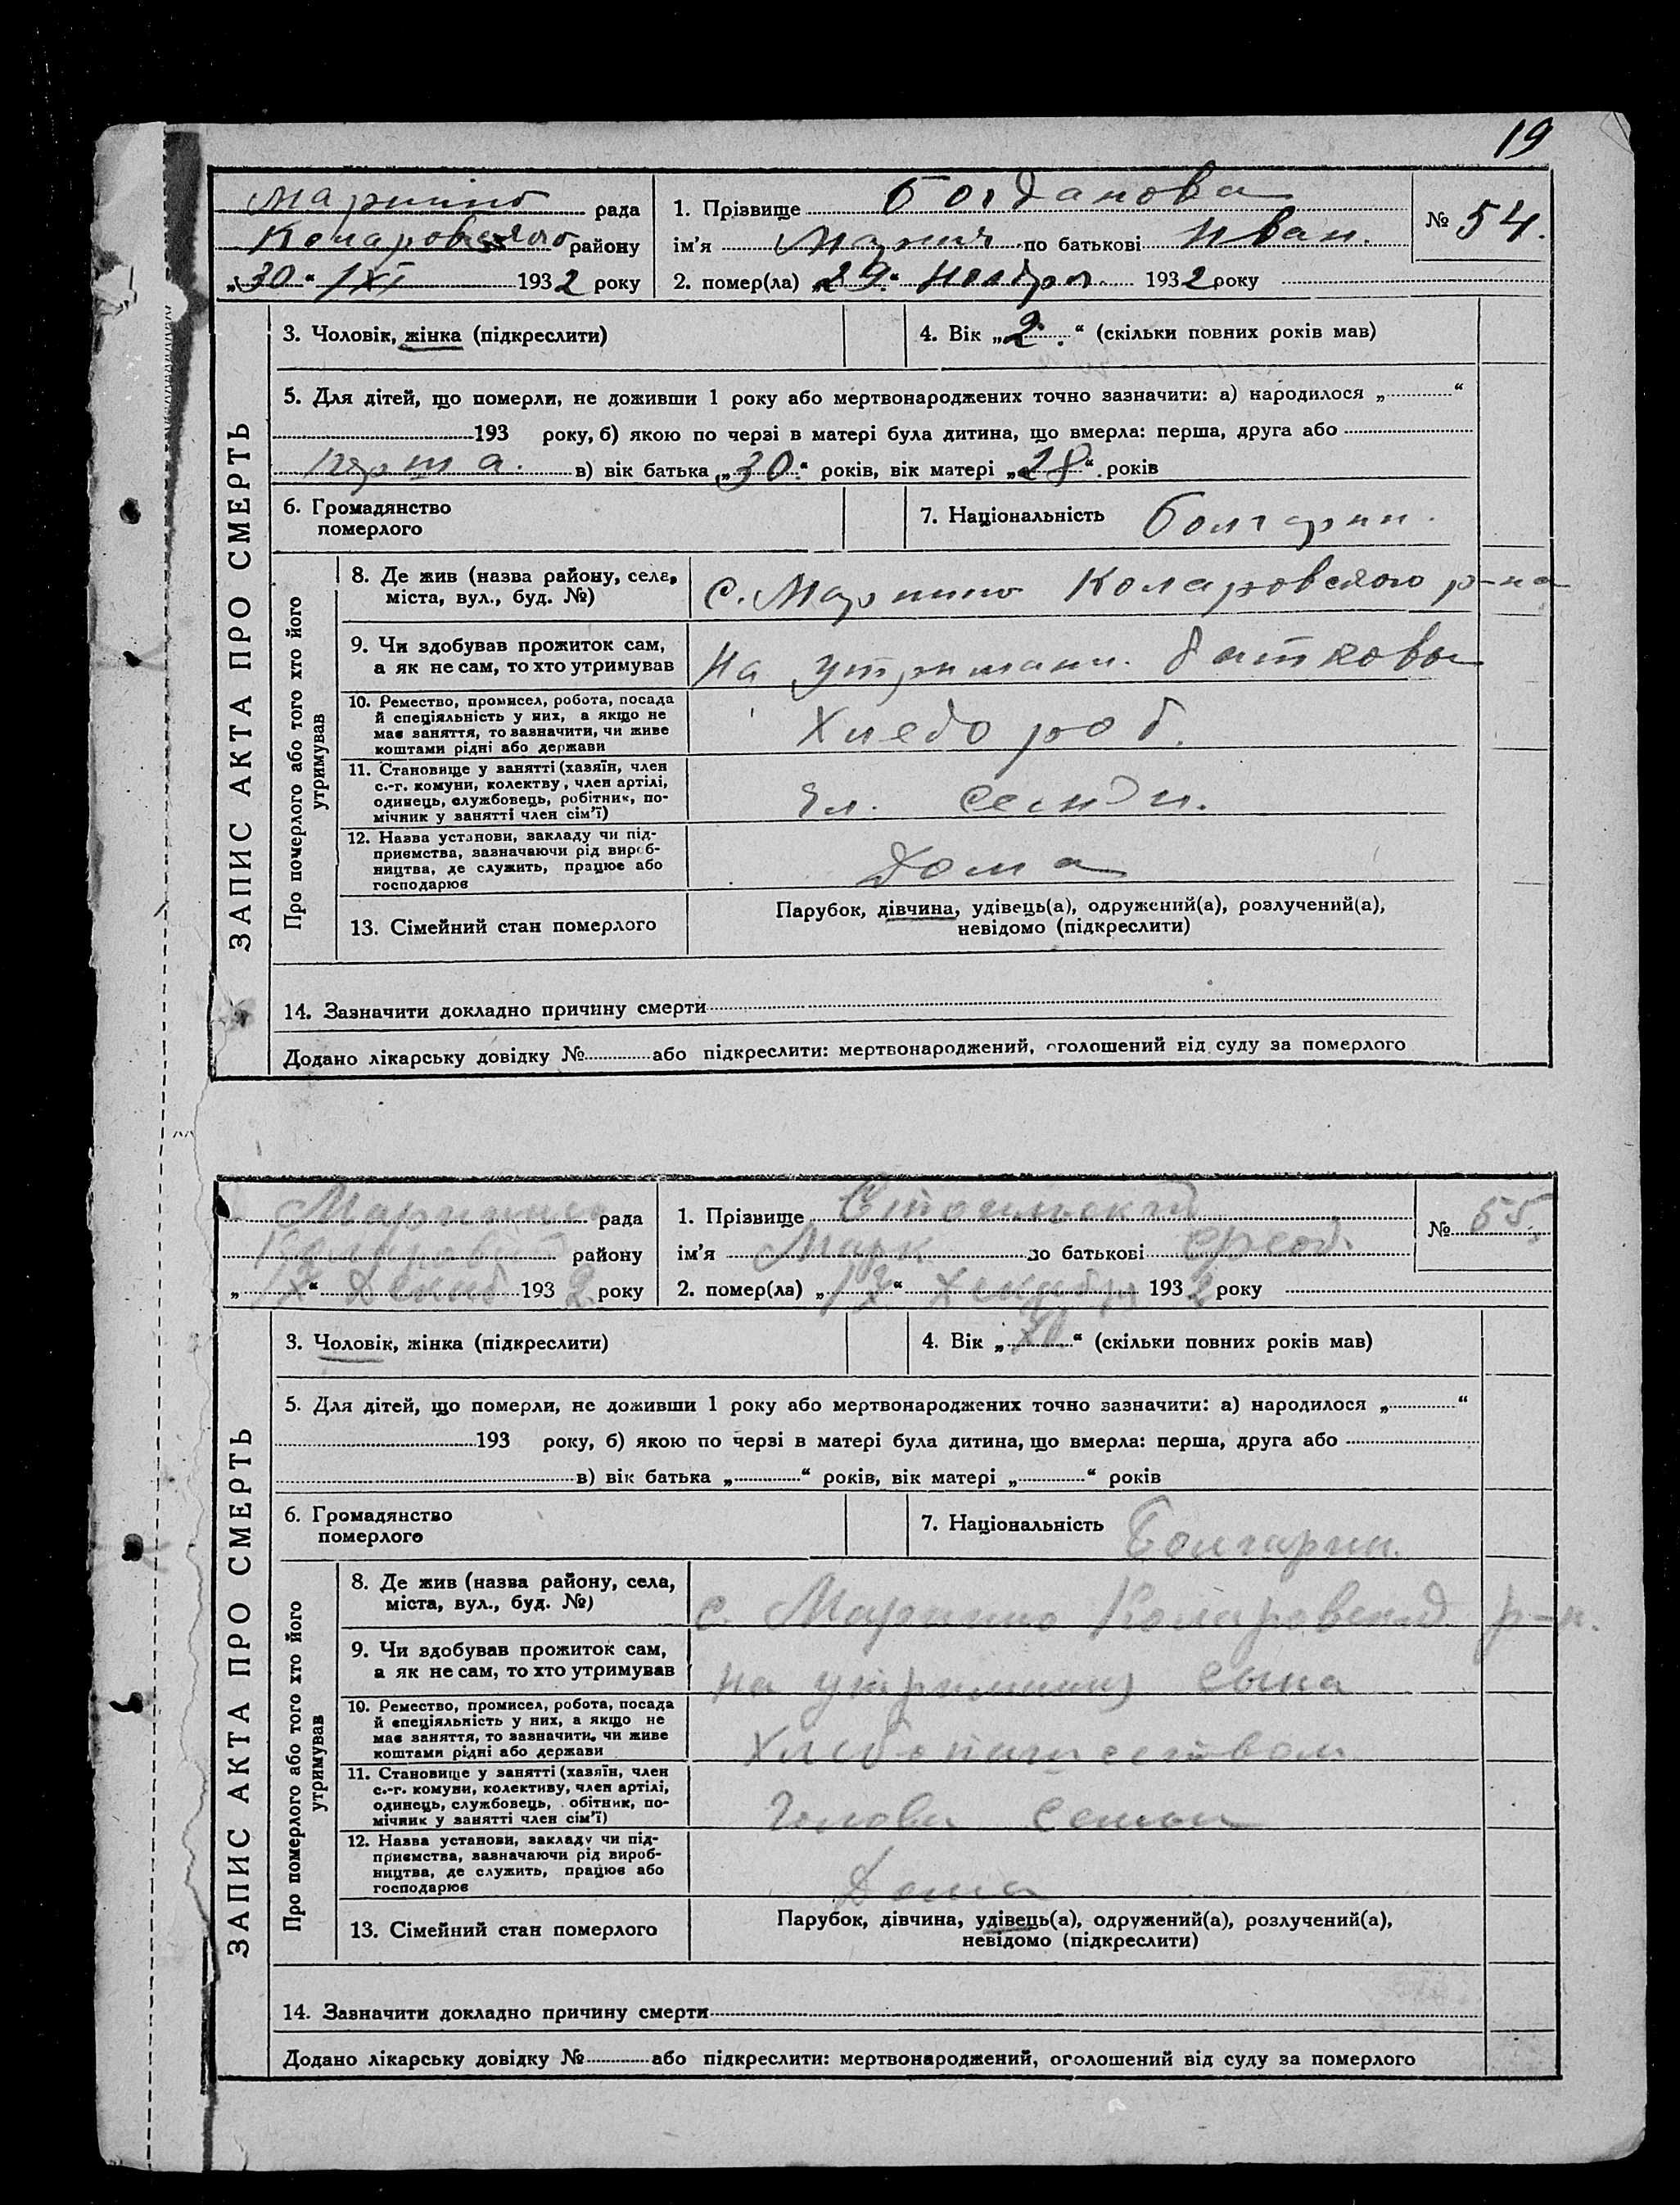 19
Марьино рада
Коларовского району
„30“ /XI 1932 року
1. Прізвище Богданова
ім'я Мария по батькові Иван.
2. помер(ла) „29“ Ноября 1932 року
№ 54.
ЗАПИС АКТА ПРО СМЕРТЬ
3. Чоловік, жінка (підкреслити)
4. Вік „2.“ (скільки повних років мав)
5. Для дітей, що померли, не доживши 1 року або мертвонароджених точно зазначити: а) народилося „ “
193 року, б) якою по черзі в матері була дитина, що вмерла: перша, друга або
перша. в) вік батька „30“ років, вік матері „28“ років
6. Громадянство
померлого
7. Національність Болгарин.
Про померлого або того хто його
утримував
8. Де жив (назва району, села,
міста, вул., буд. №)
с. Марьино Коларовского р-на
9. Чи здобував прожиток сам,
а як не сам, то хто утримував
На утриманн. батковы
10. Ремество, промисел, робота, посада
й спеціяльність у них, а якщо не
має заняття, то зазначити, чи живе
коштами рідні або держави
Хлебороб.
11. Становище у занятті (хазяїн, член
с.-г. комуни, колектву, член артілі,
одинець, службовець, робітник, по-
мічник у занятті член сім'ї)
Чл. семьи.
12. Назва установи, закладу чи під-
приємства, зазначаючи рід вироб-
ництва, де служить, працює або
господарює
Дома
13. Сімейний стан померлого
Парубок, дівчина, удівець(а), одружений(а), розлучений(а),
невідомо (підкреслити)
14. Зазначити докладно причину смерти
Додано лікарську довідку № або підкреслити: мертвонароджений, оголошений від суду за померлого
Марьино рада
району
„ “ Декаб 1932 року
1. Прізвище
ім'я Марк по батькові Феод.
2. помер(ла) „13“ Декабря 1932 року
№ 55.
ЗАПИС АКТА ПРО СМЕРТЬ
3. Чоловік, жінка (підкреслити)
4. Вік „ “ (скільки повних років мав)
5. Для дітей, що померли, не доживши 1 року або мертвонароджених точно зазначити: а) народилося „ “
193 року, б) якою по черзі в матері була дитина, що вмерла: перша, друга або
в) вік батька „ “ років, вік матері „ “ років
6. Громадянство
померлого
7. Національність Болгарин.
Про померлого або того хто його
утримував
8. Де жив (назва району, села,
міста, вул., буд. №)
с. Марьино Коларовской р-н.
9. Чи здобував прожиток сам,
а як не сам, то хто утримував
на утримании сына
10. Ремество, промисел, робота, посада
й спеціяльність у них, а якщо не
має заняття, то зазначити, чи живе
коштами рідні або держави
Хлебопашеством
11. Становище у занятті (хазяїн, член
с.-г. комуни, колективу, член артілі,
одинець, службовець, обітник, по-
мічник у занятті член сім'ї)
Голова семьи
12. Назва установи, закладу чи під-
приємства, зазначаючи рід вироб-
ництва, де служить, працює або
господарює
Дома
13. Сімейний стан померлого
Парубок, дівчина, удівець(а), одружений(а), розлучений(а),
невідомо (підкреслити)
14. Зазначити докладно причину смерти
Додано лікарську довідку № або підкреслити: мертвонароджений, оголошений від суду за померлого